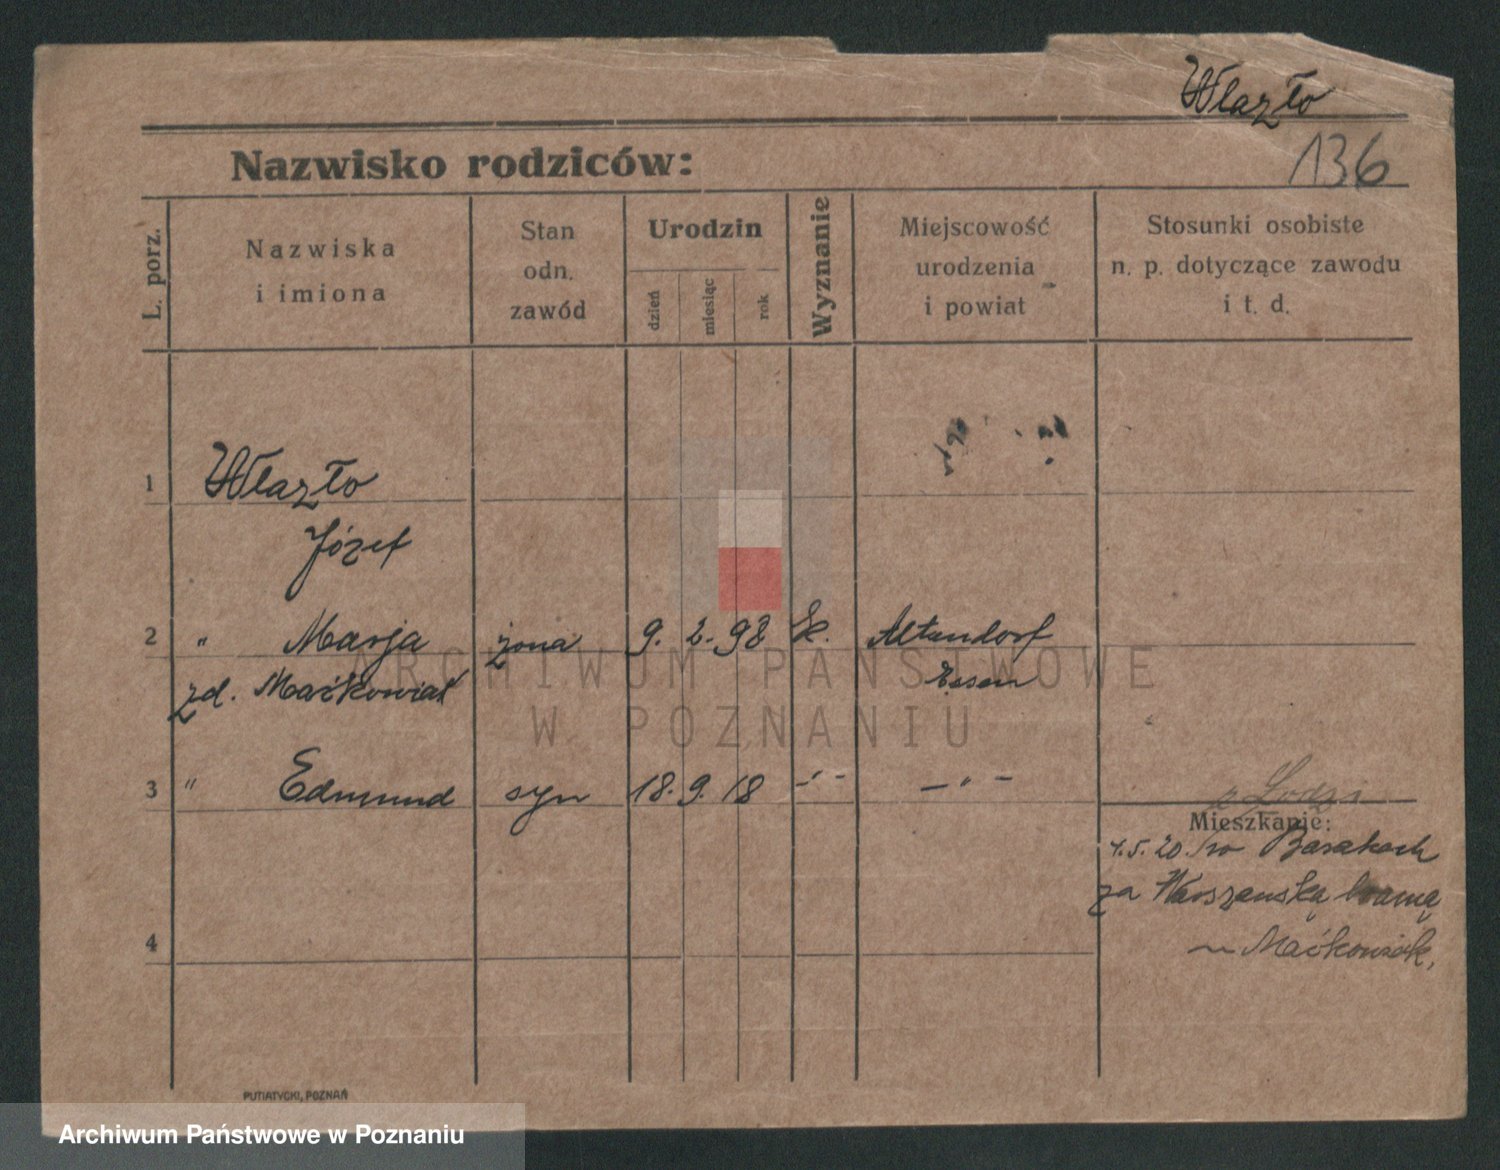 Wlazło
136
Nazwisko rodziców:
L. porz.
Nazwiska
i imiona
Stan
odn.
zawód
Urodzin
dzień
miesiąc
rok
Wyznanie
Miejscowość
urodzenia
i powiat
Stosunki osobiste
n. p. dotyczące zawodu
i t. d.
1 Wlazło
Józef
2 " Marja żona 9. 2. 98 k. Altendorf
zd. Maćkowiak Essen
3 " Edmund syn 18. 9. 18 -"- -"-
z Łodzi
Mieszkanie:
4.5.20. w Barakach
za Warszawską bramą
u Maćkowiak.
4
PUTIATYCKI, POZNAŃ
ARCHIWUM PAŃSTWOWE
W POZNANIU
Archiwum Państwowe w Poznaniu